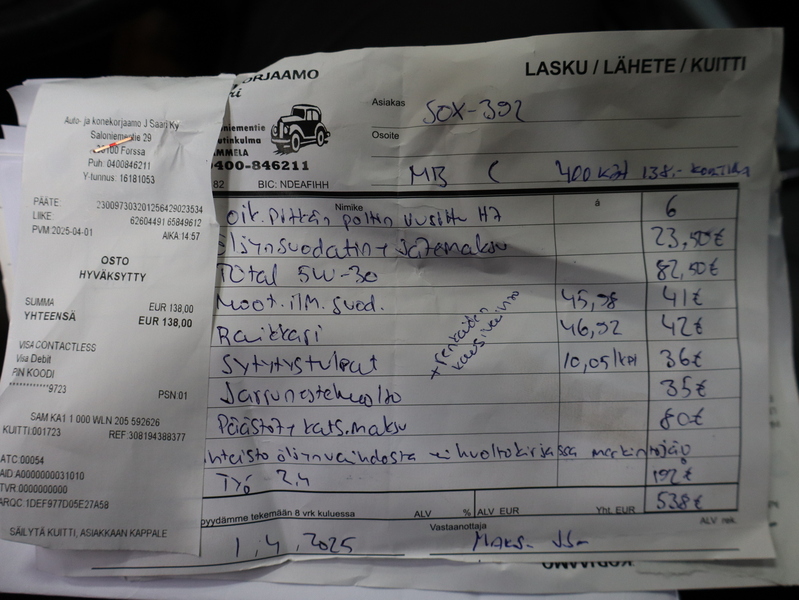 Auto- ja konekorjaamo J Saari Ky
Saloniementie 29
30100 Forssa
Puh: 0400846211
Y-tunnus: 16181053
PÄÄTE: 2300973032012564290235​34
LIIKE: 6260449165849612
PVM 2025-04-01 AIKA:14:57
OSTO
HYVÄKSYTTY
SUMMA EUR 138,00
YHTEENSÄ EUR 138,00
VISA CONTACTLESS
Visa Debit
PIN KOODI
************9723 PSN:01
SAM KA1 1 000 WLN 205 592626
KUITTI:001723 REF:308194388377
ATC:00054
AID:A0000000031010
TVR:0000000000
ARQC:1DEF977D05E27A58
SÄILYTÄ KUITTI, ASIAKKAAN KAPPALE
ORJAAMO
ri
niementie
utinkulma
MMELA
400-846211
82 BIC: NDEAFIHH
LASKU / LÄHETE / KUITTI
Asiakas SOX-392
Osoite
MB C 400 Kät 138,-
Nimike á
Oik. Pitkän poltin uusittu H7 6
Öljynsuodatin + Jätemaksu 23,50€
Total 5W-30 82,50€
Moot. ilm. suod. 45,98 41€
Raikkari 46,92 42€
Sytytystulpat 10,05/kpl 36€
+ renkaiden
kausivaihto
Jarrunestehuolto 35€
Päästöt + kats.maksu 80€
hteisto öljynvaihdosta ei huoltokirjassa merkintöjä
Työ 2,4 192€
pyydämme tekemään 8 vrk kuluessa ALV % ALV EUR Yht. EUR 538€
Vastaanottaja ALV rek.
1.4.2025
KORJAAMO